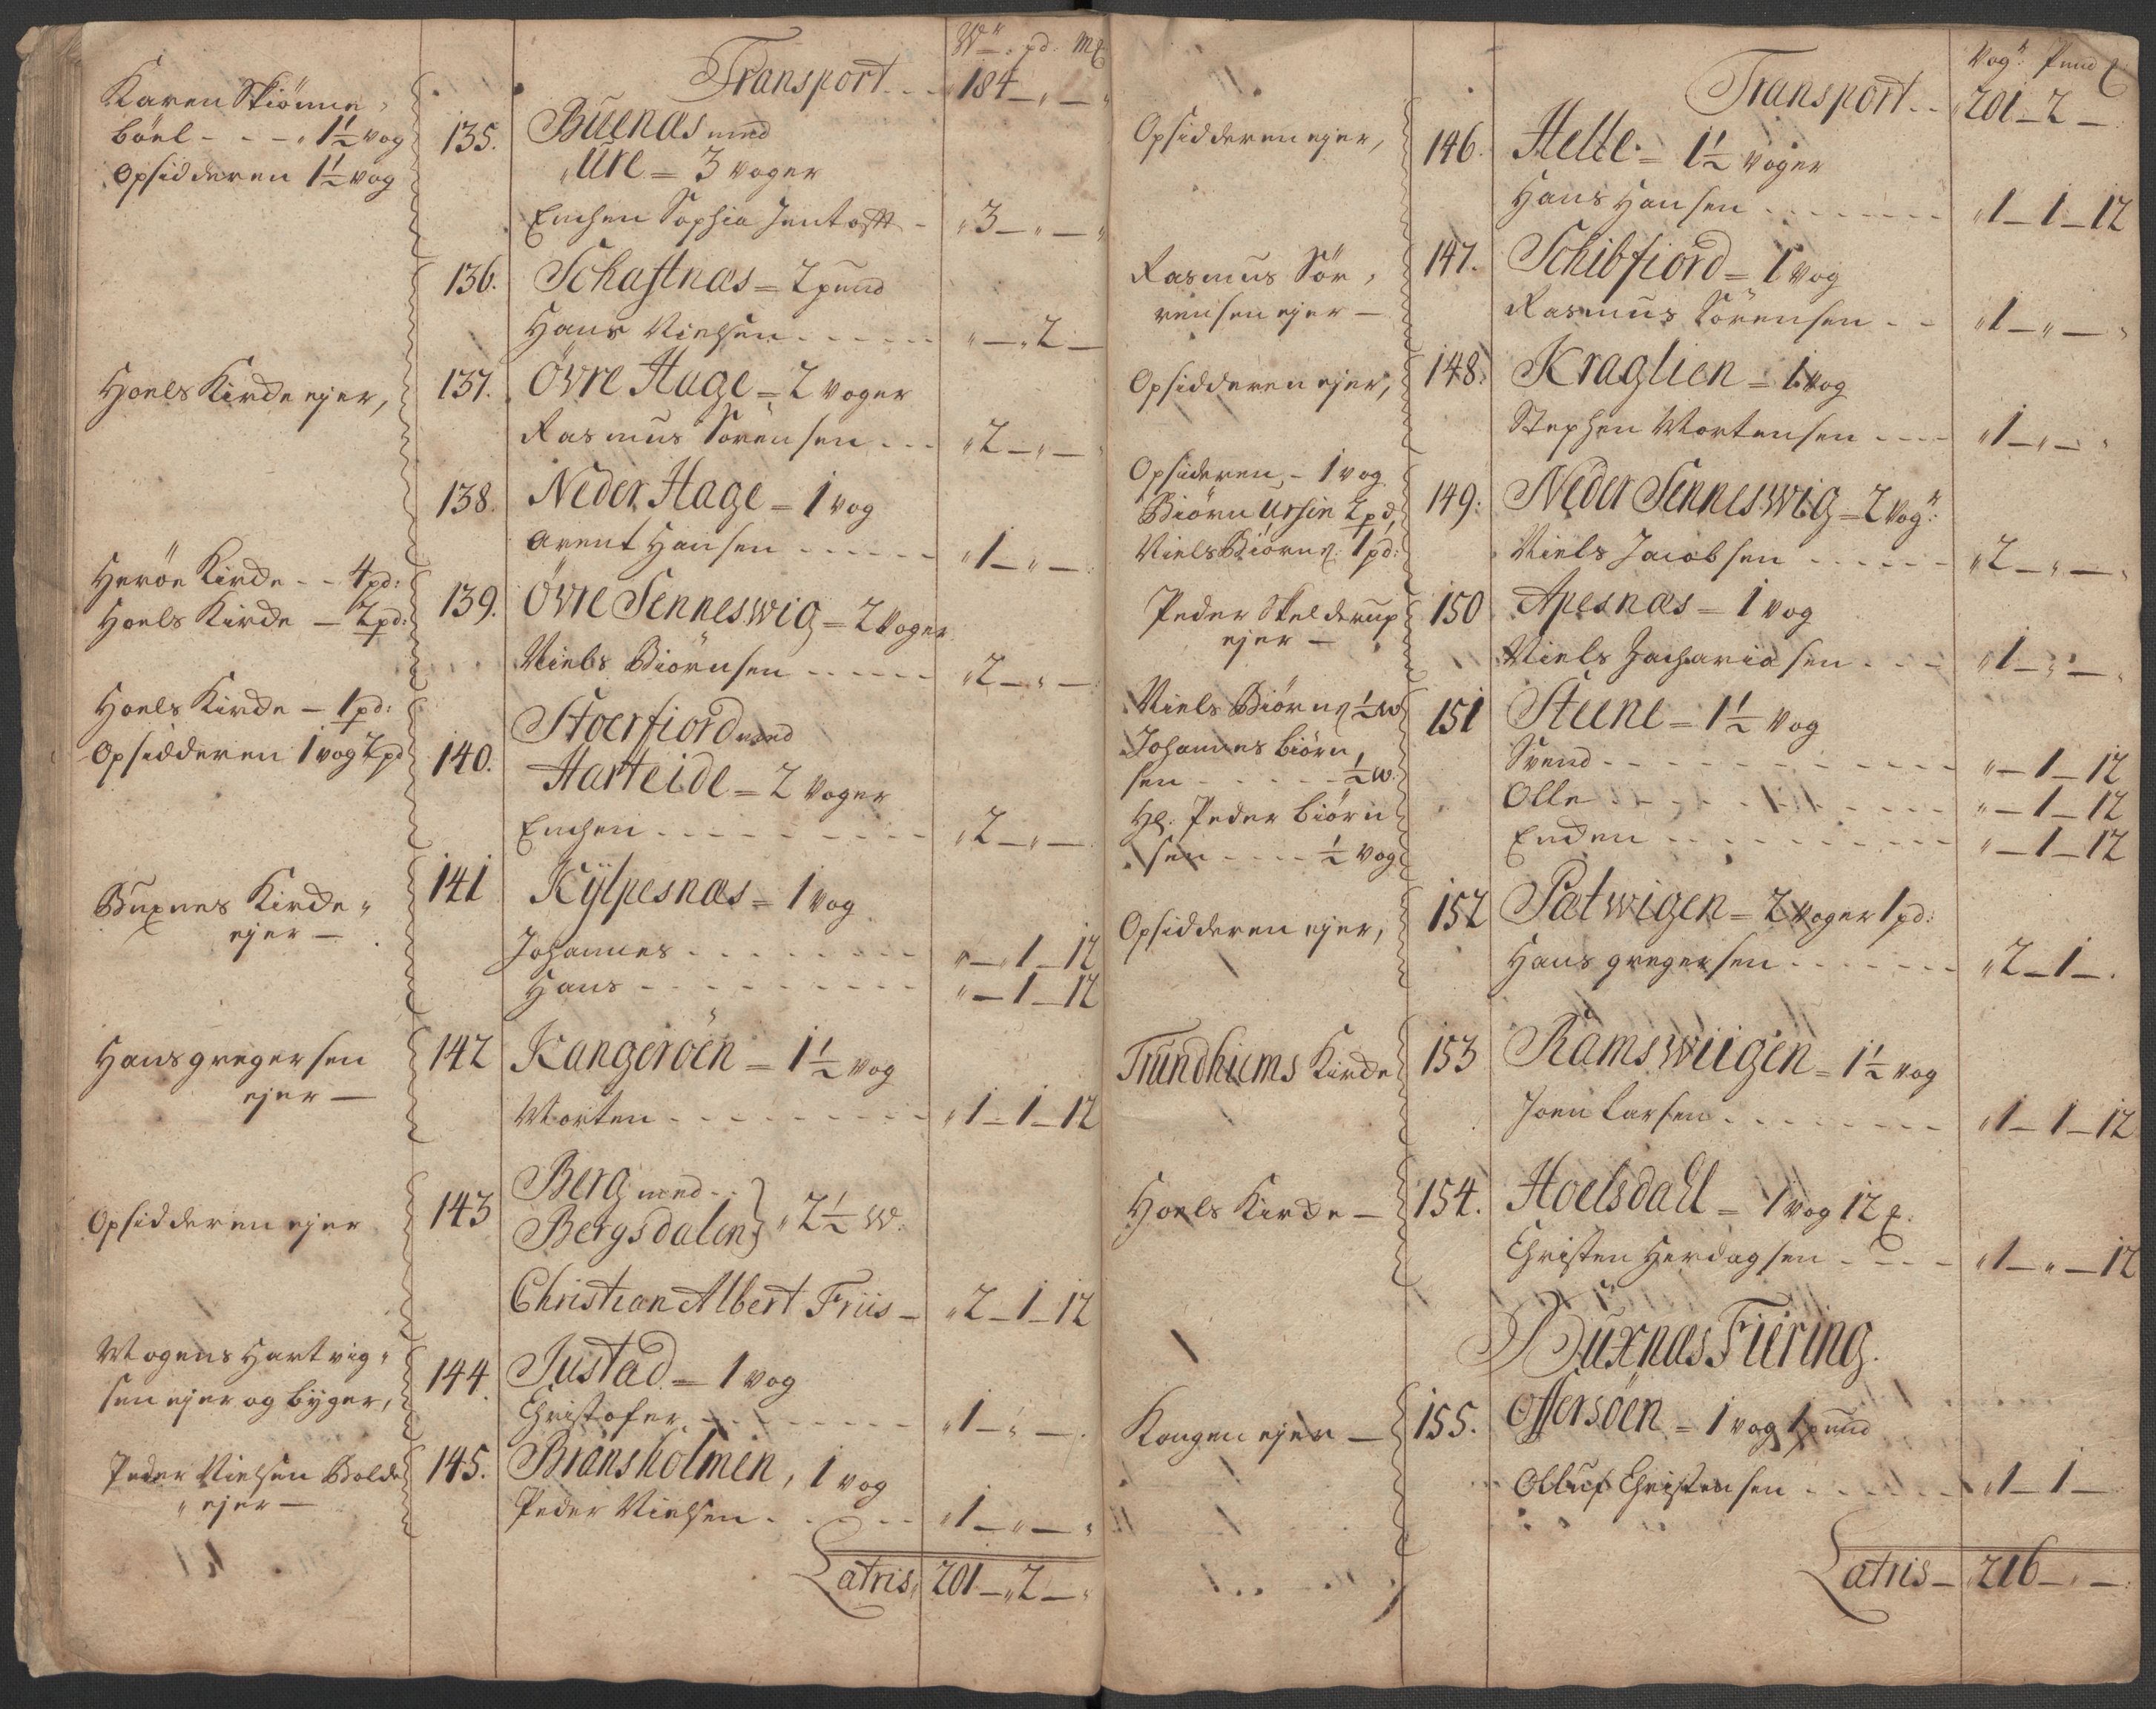 Wr: pd: M
Transport - - - 184 - " - "
Karen Skiønne-
böel - - - " 1½ vog
Opsidderen 1½ vog
135. Buenæs med
Ure = 3 voger
Enchen Sophia Jentofft - "3 - " - "
136. Schaftnæs = 2 pund
Hans Nielsen - - - - - " - "2 -
Hoels Kirche ejer,
137. Øvre Hage = 2 voger
Rasmus Sørensen - - - "2 - " -
138. Neder Hage = 1 vog
Arent Hansen - - - - - - "1 - " -
Herøe Kirche - - 4 pd:
Hoels Kirche - 2 pd:
139. Øvre Senneswig = 2 Voger
Niels Biørnsen - - - - - - "2 - " -
Hoels Kirche - 1 pd:
Opsidderen 1 vog 2 pd
140. Stoerfiord med
Harteide = 2 Voger
Enchen - - - - - - - - "2 - " -
Buxnes Kirche "
ejer -
141 Kylpesnæs = 1 vog
Johannes - - - - - - - " - "1 - 12
Hans - - - - - - - - " - 1 - 12
Hans gregersen
ejer -
142 Kangerøen = 1½ vog
Morten - - - - - - - - "1 - 1 - 12
Opsidderen ejer
143 Berg med -
Bergsdalen } " 2½ W:
Christian Albert Friis - "2 - 1 - 12
Mogens Hartvig"
sen ejer og byger,
144. Justad = 1 vog
Christofer - - - - - - - "1 - " -
Peder Nielsen Bolde
" ejer -
145. Bransholmen, 1 vog
Peder Nielsen - - - - - "1 - " - "
Latris, 201 - "2 - "
Vogr: Pund
Transport - - "201 - 2 -
Opsidderen ejer,
146. Helle = 1½ voger
Hans Hansen - - - - - - - "1 - 1 - 12
Rasmus Sør"
rensen ejer -
147. Schibfiord = 1 vog
Rasmus Sørensen - - "1 - " - "
Opsidderen ejer,
148. Kraglien = 1 vog
Stephen Mortensen - - - - "1 - " - "
Opsideren, - 1 vog
Biørn Ursin 2 pd,
Niels Biørns: 1 pd:
149: Neder Senneswig = 2 Vogr:
Niels Jacobsen - - - - - - "2 - " - "
Peder Skelderup
ejer -
150 Apesnæs = 1 vog
Niels Zachariasen - - - "1 - " - "
Niels Biørns ½ W
Johannes Biørn,
sen - - - - - - ½ W:
Hr. Peder Biørn
sen - - - - ½ Vog
151 Steene = 1½ Vog
Svend - - - - - - - - - - " - 1 - 12
Olle - - - - - - - - - - " - 1 - 12
Enchen - - - - - - - - - " - 1 - 12
Opsidderen ejer,
152 Petwigen = 2 voger 1 pd:
Hans gregersen - - - - - - "2 - 1 -
Trundhiems Kirche
153 Ramswiigen = 1½ vog
Joen Larsen - - - - - - - "1 - 1 - 12
Hoels Kirche -
154. Hoelsdahl = 1 vog 12
Christen Herdagsen - - - - "1 - " - 12
Buxnæs Fiering.
Kongen ejer -
155. Offersøen = 1 vog 1 pund
Olluf Christensen - - - - - "1 - 1 -
Latris - 216 - " -